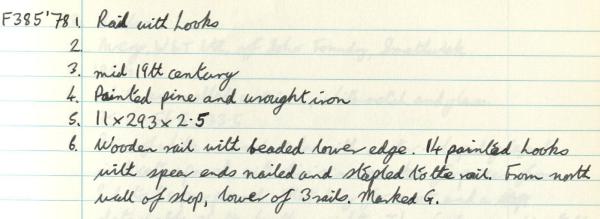 F385'78 1. Rail with hooks
2.
3. mid 19th century
4. Painted pine and wrought iron
5. 11 x 293 x 2.5
6. Wooden rail with beaded lower edge. 14 painted hooks
with spear ends nailed and stapled to the rail. From north
wall of shop, lower of 3 rails. Marked G.